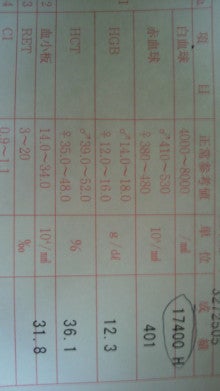 項 目 正常参考値 単 位 成 績
白血球 4000~8000 /㎜³ 17400 H
赤血球 ♂410~530 10⁴/㎜³ 401
♀380~480
1 HGB ♂14.0~18.0 g/dℓ 12.3
♀12.0~16.0
HCT ♂39.0~52.0 % 36.1
♀35.0~48.0
2 血小板 14.0~34.0 10⁴/㎜³ 31.8
3 RET 3~20 ‰
4 CI 0.9~1.1